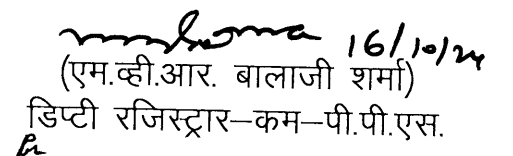 16/10/24
(एम.व्ही.आर. बालाजी शर्मा)
डिप्टी रजिस्ट्रार–कम–पी.पी.एस.